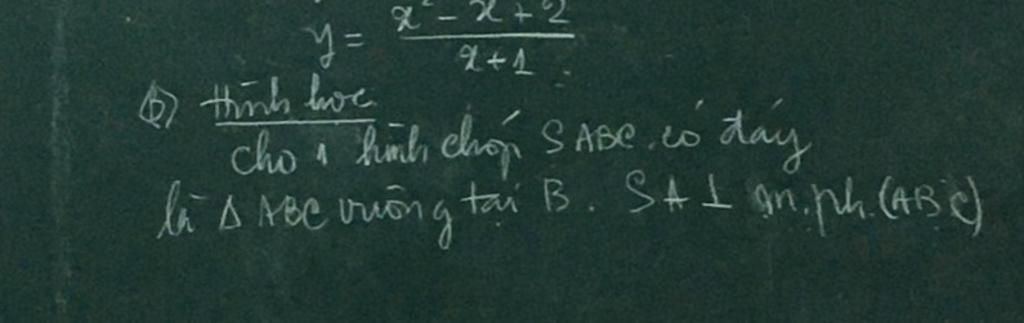 y = x² - x + 2 / x + 1
b) Hình học
Cho 1 hình chóp SABC có đáy
là Δ ABC vuông tại B. SA ⊥ m.ph.(ABC)